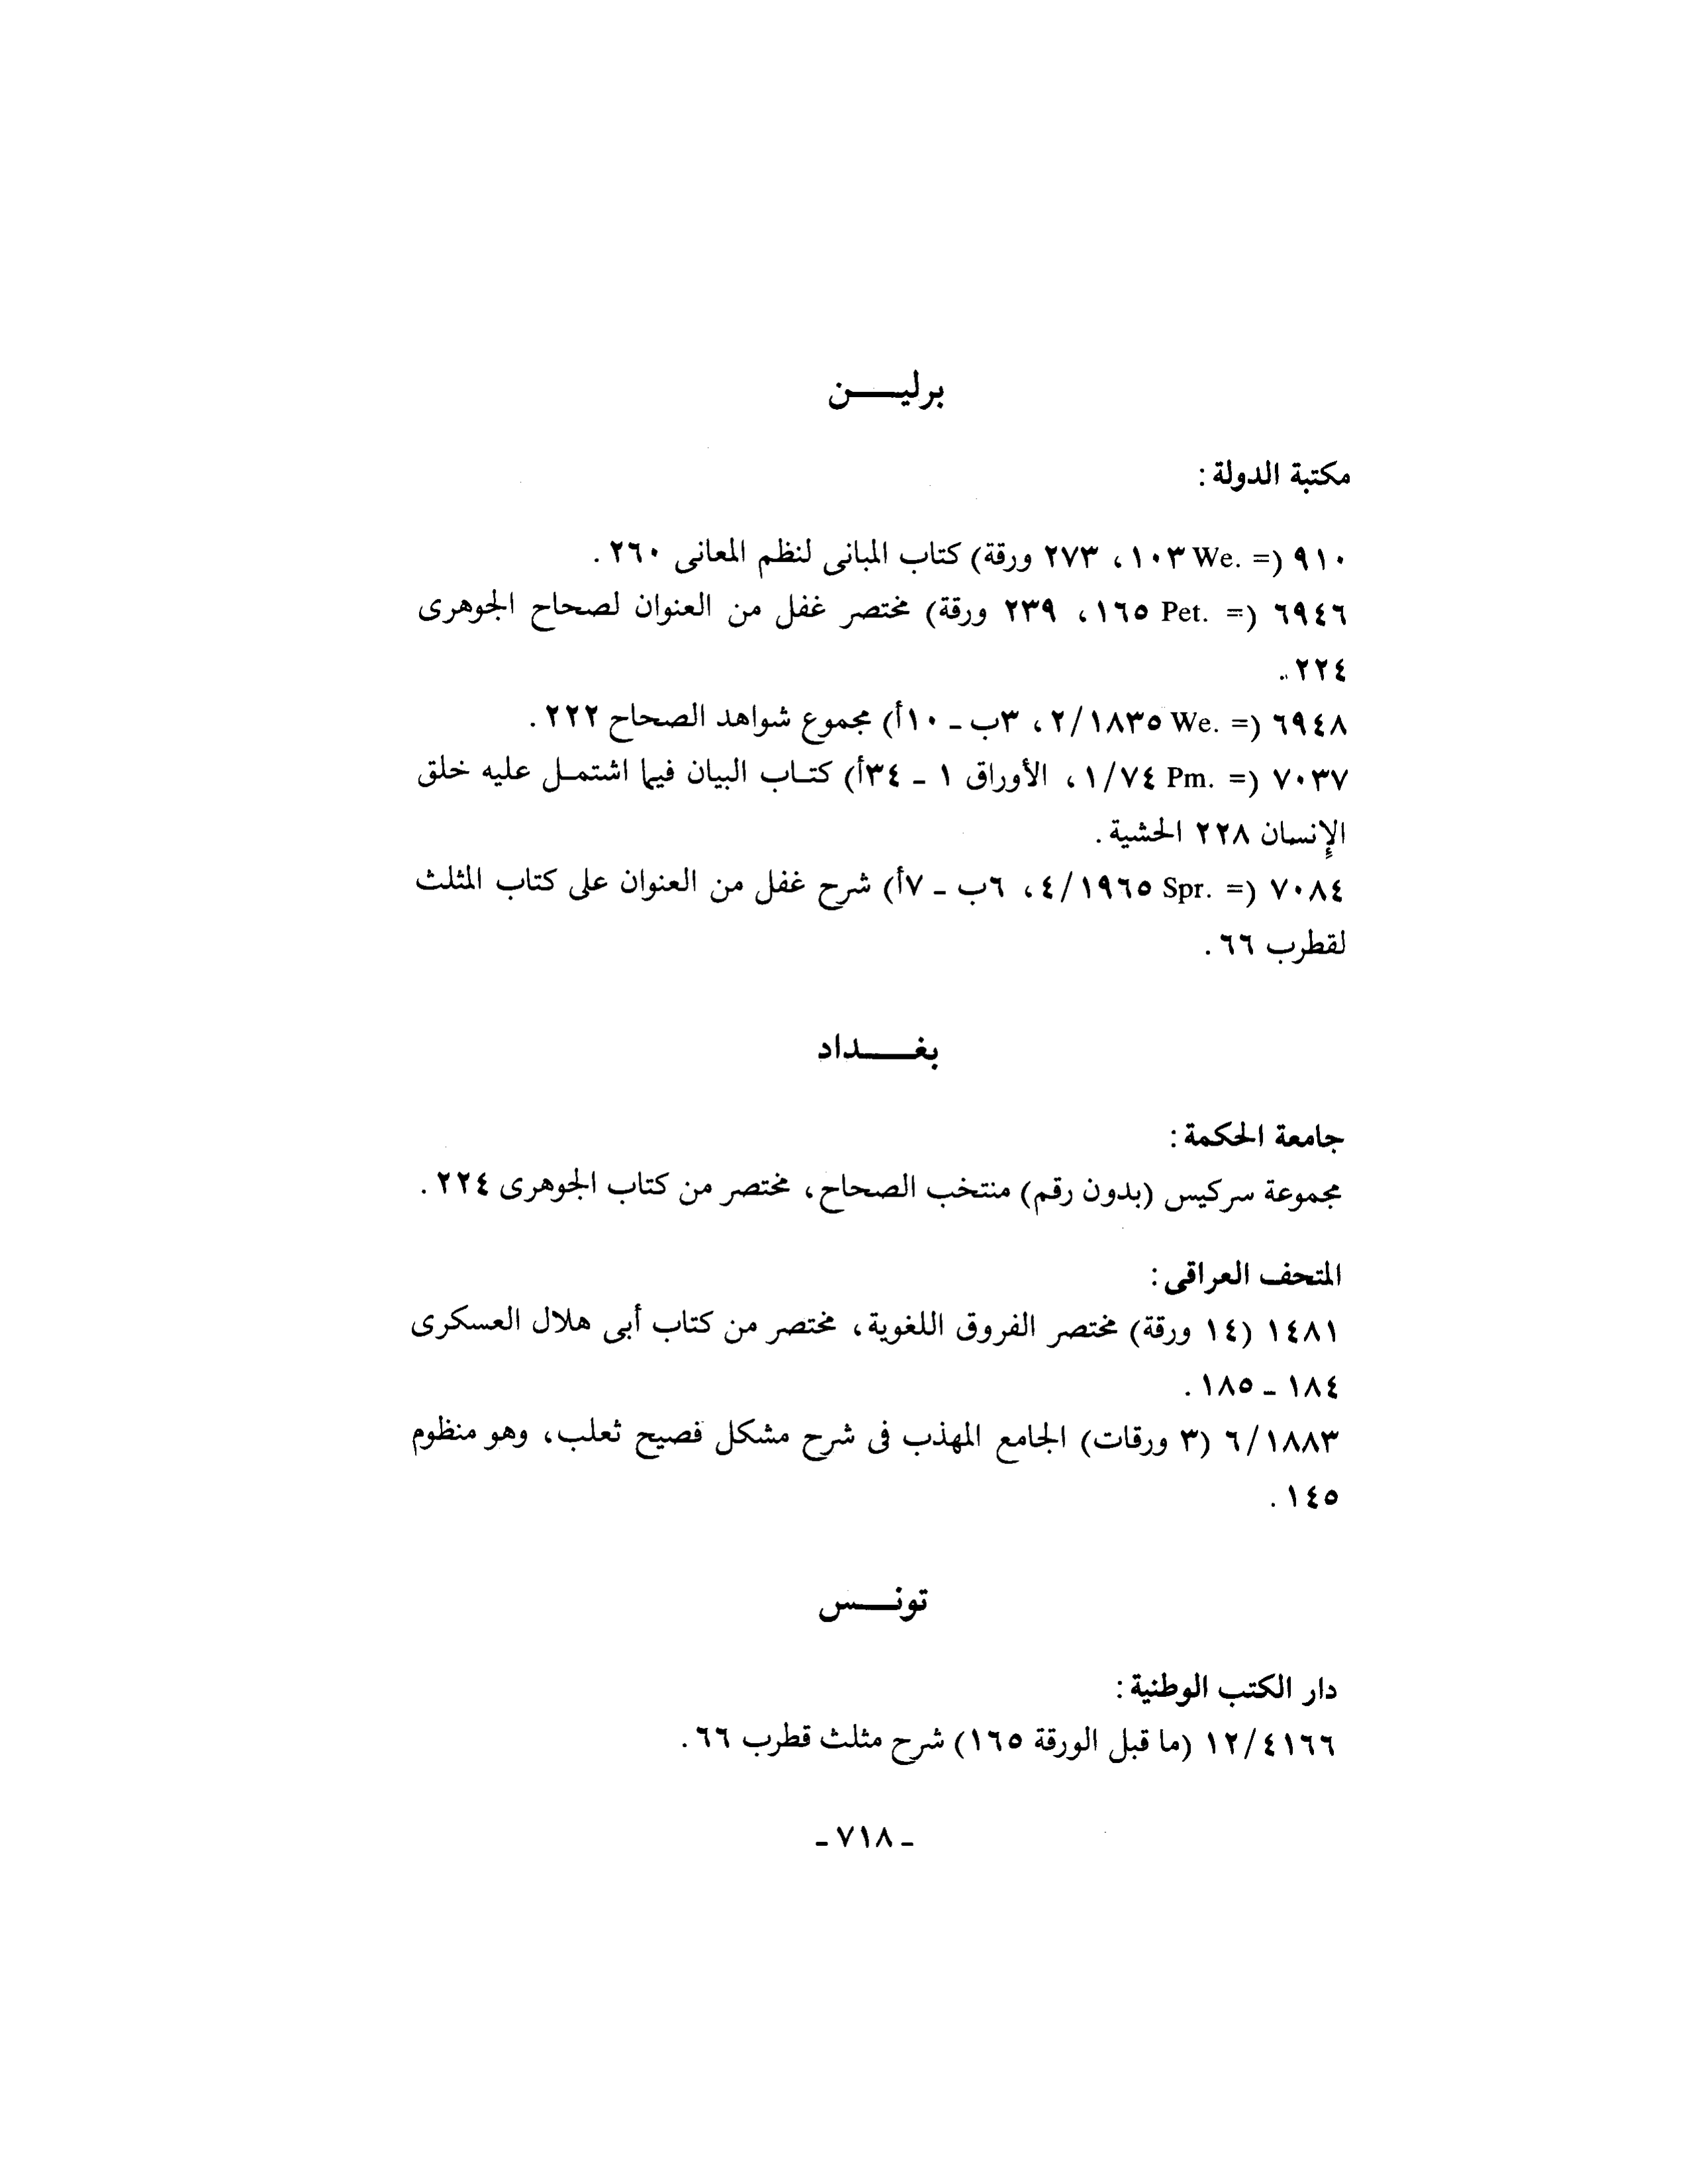 برليــــن
مكتبة الدولة :
٩١٠ (= .We ١٠٣ ، ٢٧٣ ورقة) كتاب المبانى لنظم المعانى ٢٦٠ .
٦٩٤٦ (= .Pet ١٦٥ ، ٢٣٩ ورقة) مختصر غفل من العنوان لصحاح الجوهرى
٢٢٤ .
٦٩٤٨ (= .We ٢/١٨٣٥ ، ٣ب ـ ١٠أ) مجموع شواهد الصحاح ٢٢٢ .
٧٠٣٧ (= .Pm ١/٧٤ ، الأوراق ١ ـ ٣٤أ) كتـاب البيان فيما اشتمـل عليه خلق
الإنسان ٢٢٨ الحشية .
٧٠٨٤ (= .Spr ٤/١٩٦٥ ، ٦ب ـ ٧أ) شرح غفل من العنوان على كتاب المثلث
لقطرب ٦٦ .
بغــــداد
جامعة الحكمة :
مجموعة سركيس (بدون رقم) منتخب الصحاح ، مختصر من كتاب الجوهرى ٢٢٤ .
المتحف العراقى :
١٤٨١ (١٤ ورقة) مختصر الفروق اللغوية ، مختصر من كتاب أبى هلال العسكرى
١٨٤ ـ ١٨٥ .
٦/١٨٨٣ (٣ ورقات) الجامع المهذب فى شرح مشكل فصيح ثعلب ، وهو منظوم
١٤٥ .
تونــــس
دار الكتب الوطنية :
١٢/٤١٦٦ (ما قبل الورقة ١٦٥) شرح مثلث قطرب ٦٦ .
ـ ٧١٨ ـ